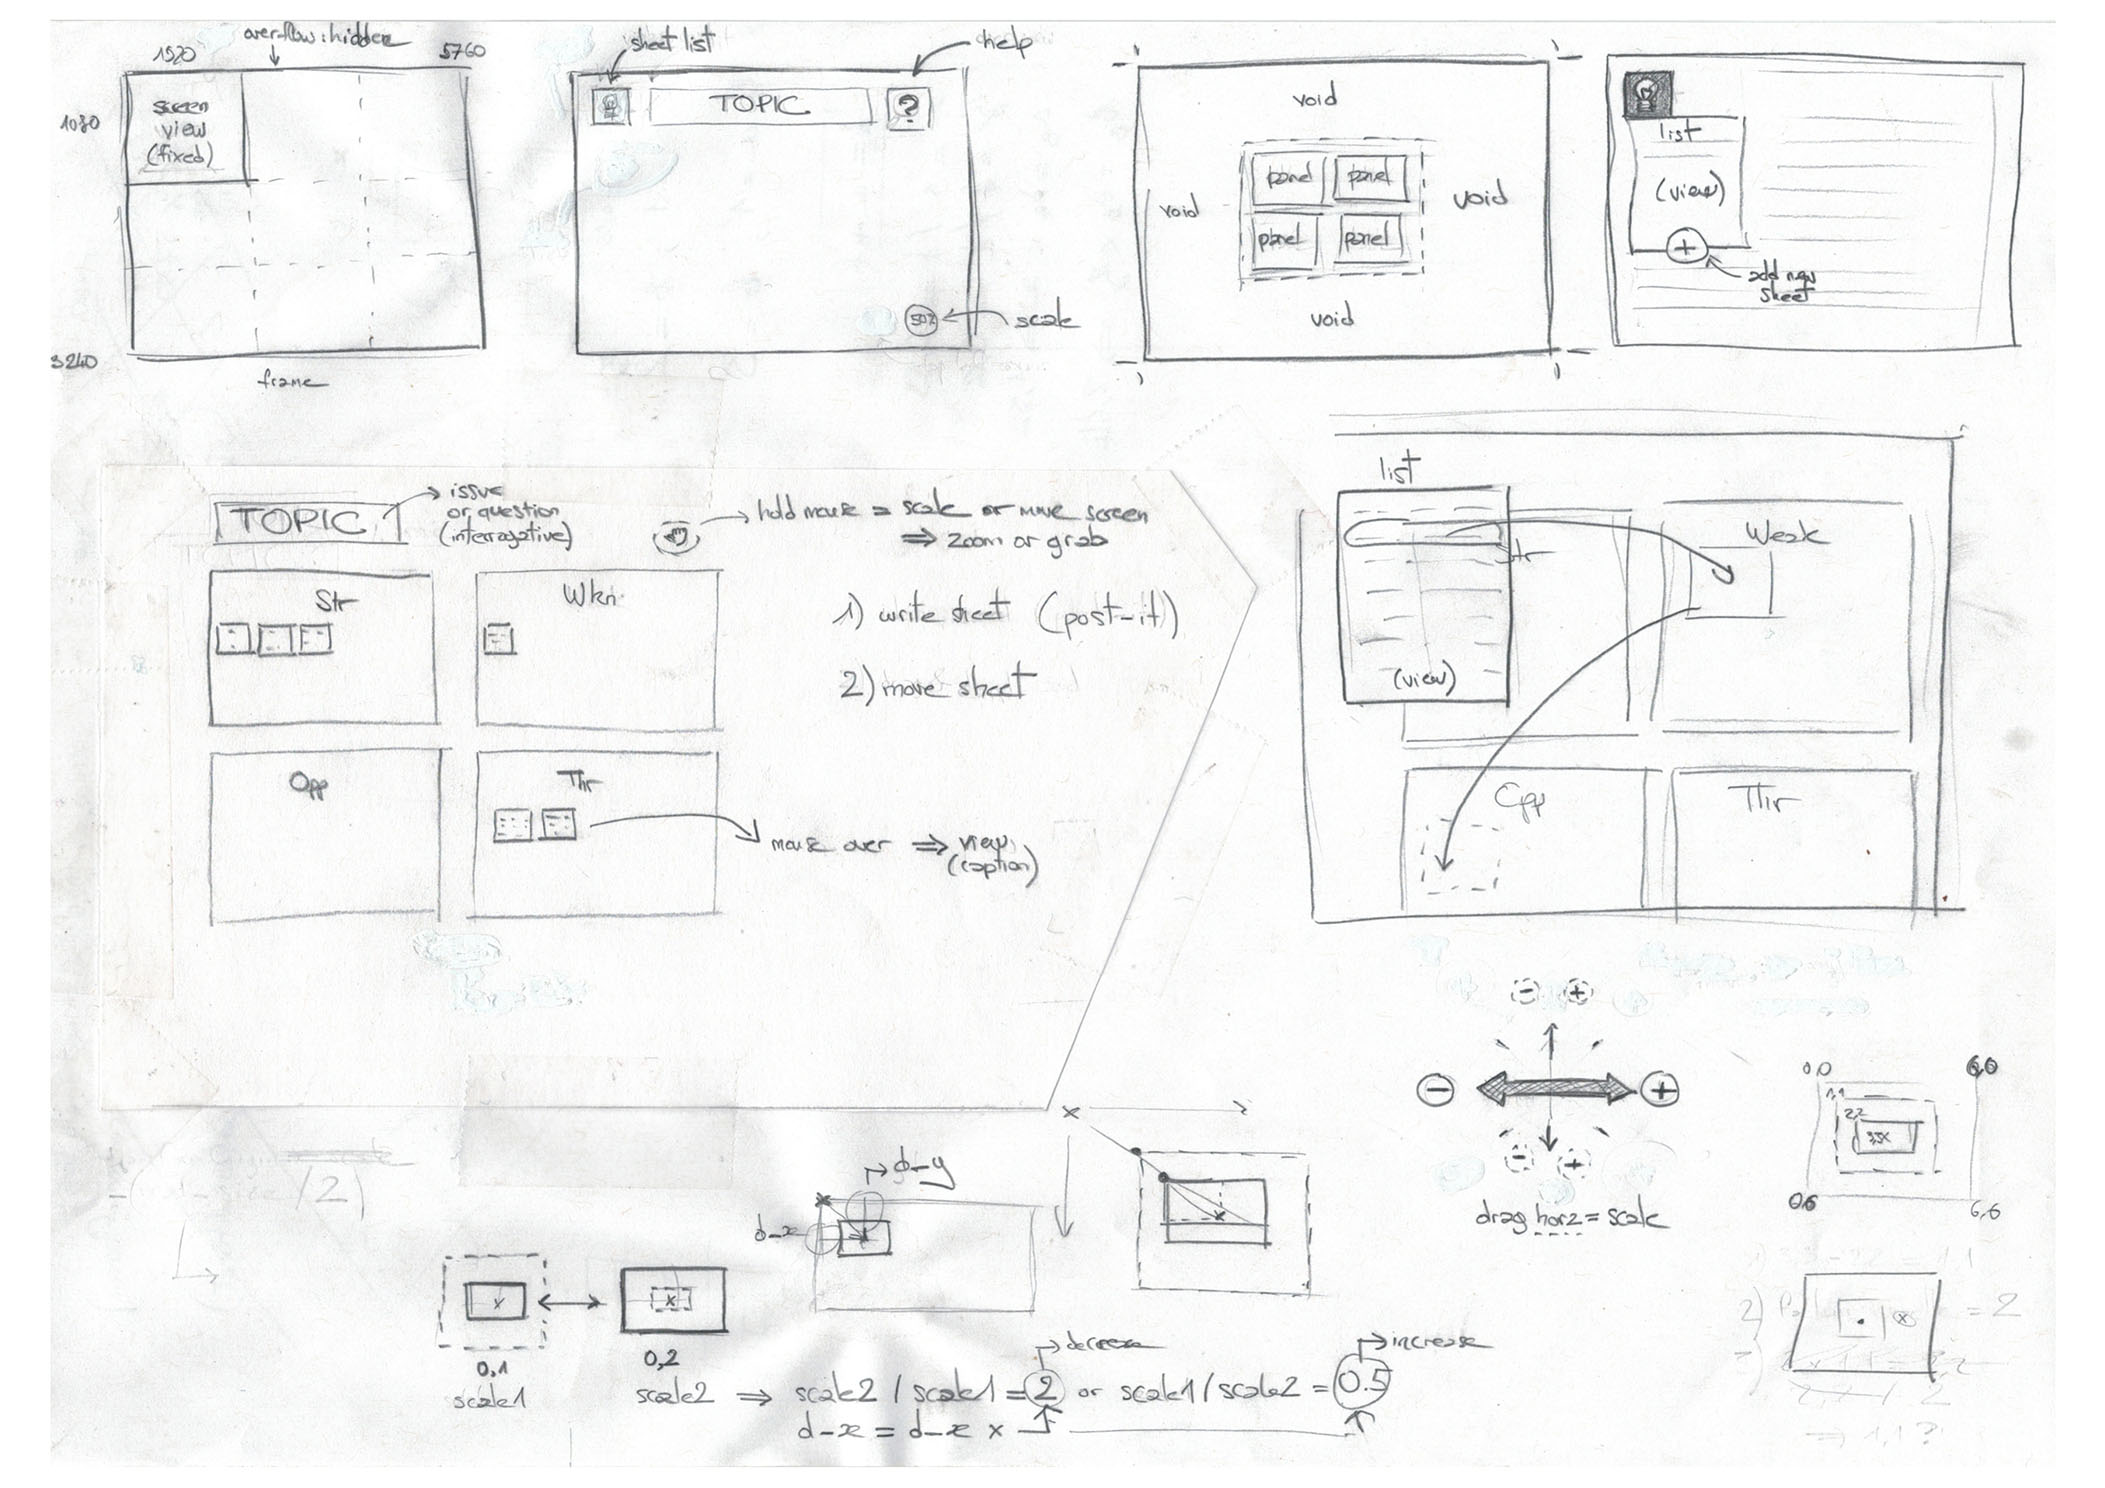 overflow: hidden
1920
5760
1080
screen
view
(fixed)
3240
frame
sheet list
help
TOPIC
?
50%
scale
void
void
void
void
panel
panel
panel
panel
list
(view)
+
add new
sheet
TOPIC
issue
or question
(interrogative)
hold mouse = scale or move screen
⇒ zoom or grab
Str
Wkn
1) write sheet (post-it)
2) move sheet
Opp
Thr
mouse over ⇒ view
(caption)
list
Str
Weak
(view)
Opp
Thr
- +
- +
- +
drag horz = scale
0,0
6,0
1,1
2,2
0,6
6,6
x
d-y
d-x
x
x
x
0,1
scale1
0,2
scale2 ⇒ scale2 / scale1 = 2 or scale1 / scale2 = 0.5
decrease
increase
d-x = d-x ×
/2)
2)
= 2
⇒ 1,1 ?